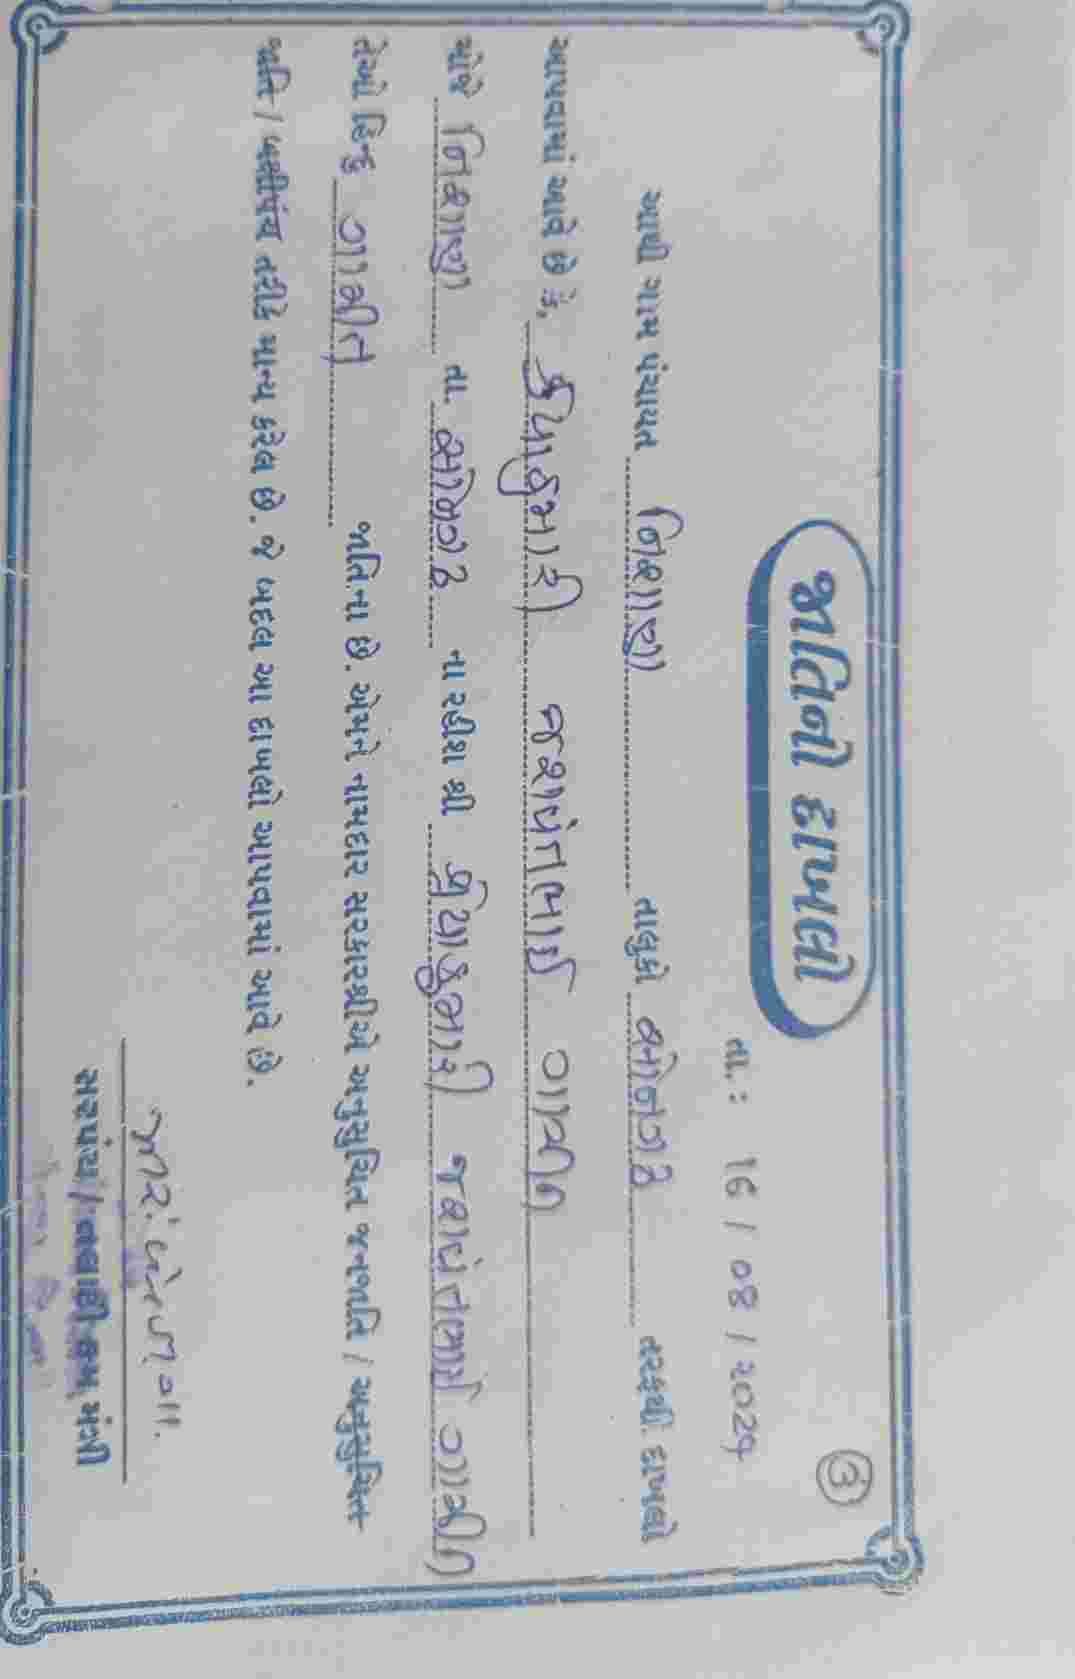 ③
જાતિનો દાખલો
તા.: 16 / 08 / 2024
આથી ગામ પંચાયત નિશાણા તાલુકો સોનગઢ તરફથી દાખલો
આપવામાં આવે છે કે, કૃપાકુમારી જશવંતભાઈ ગામીત
મોજે નિશાણા તા. સોનગઢ ના રહીશ શ્રી કૃપાકુમારી જશવંતભાઈ ગામીત
તેઓ હિન્દુ ગામીત જાતિના છે. એમને નામદાર સરકારશ્રીએ અનુસુચિત જનજાતિ / અનુસુચિત
જાતિ / બક્ષીપંચ તરીકે માન્ય કરેલ છે. જે બદલ આ દાખલો આપવામાં આવે છે.
સરપંચ / તલાટી કમ મંત્રી